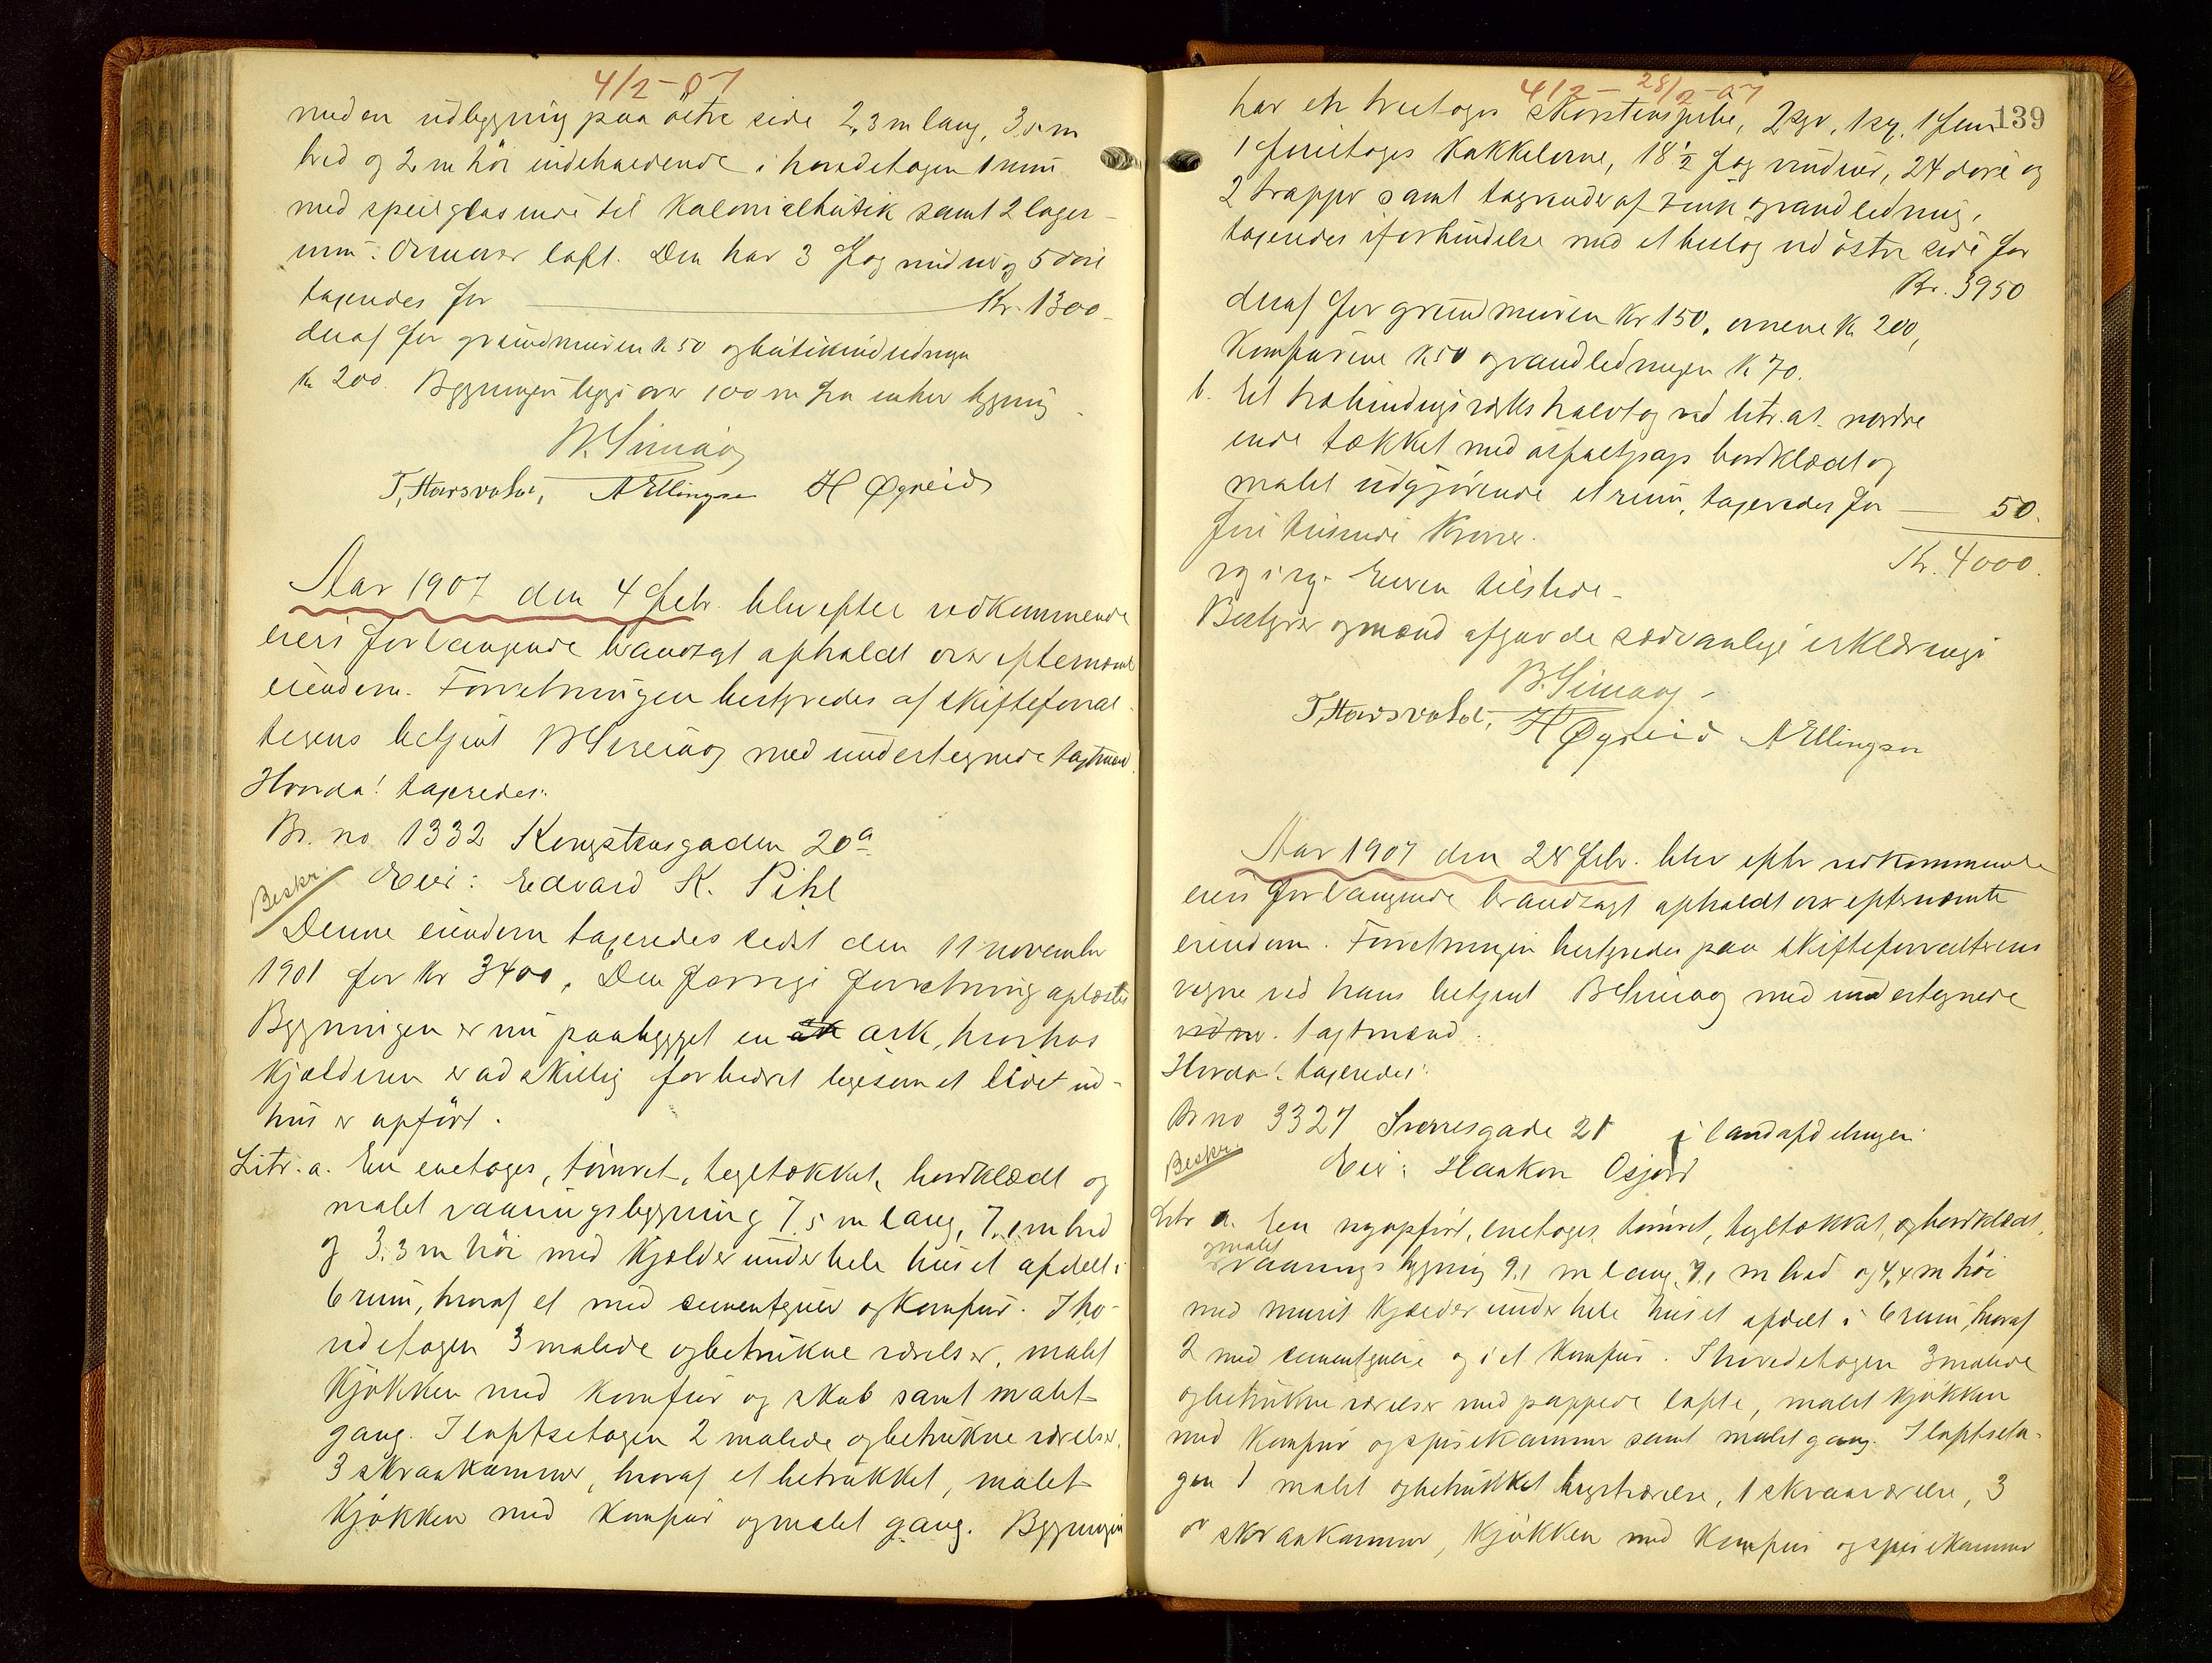 4/2-07
med en udbygning paa østre side 2,3 m lang, 3,5 m
bred og 2 m høi indeholdende i hovedetagen 1 rum
med speilglasrude til Kolonialbutik samt 2 lager-
rum. Ovenover loft. Den har 3 fag vinduer og 5 døre
taxeredes for Kr. 1300
deraf for grundmuren K 50 og butikindredningen
Kr 200. Bygningen ligger over 100 m fra enhver bygning.
T. Hausvold, A Ellingsen H Øgreid
Aar 1907 den 4 Febr. blev efter vedkommende
eiers forlangende brandtaxt afholdt over efternævnte
eiendom. Forretningen bestyredes af skifteforval-
terens betjent med undertegnede taxtmænd.
Hvorda! taxeredes:
Br. no 1332 Kongstensgaden 20a
Beskr.
Eier: Edvard K. Pihl
Denne eiendom taxeredes sidst den 11 november
1901 for Kr 3400. Den forrige forretning oplæstes
Bygningen er nu paabygget en ark, hvorhos
Kjælderen er adskillig forbedret ligesom et lidet ud-
hus er opført.
Litr. a. En enetages, tømret, tegltækket, bordklædt og
malet vaaningsbygning 7,5 m lang, 7,1 m bred
og 3,3 m høi med Kjælder under hele huset afdelt i
6 rum, hvoraf et med cementgulv og Komfur. I ho-
vedetagen 3 malede og betrukne værelser, malet
Kjøkken med Komfur og skab samt malet
gang. I loftsetagen 2 malede og betrukne værelser,
3 skraakammer, hvoraf et betrukket, malet
Kjøkken med Komfur og malet gang. Bygningen
139
4/2- 28/2-07
har en treetages Skorstenspibe, 2 1 1 fem
1 fireetages Kakkelovne, 18 1/2 fag vinduer, 24 døre og
2 trapper samt tagrender af zink og vandledning,
taxeredes i forbindelse med et bislag ved østre side for
Kr. 3950
deraf for grundmuren Kr 150, ovnene K 200,
Komfurene K 50 og vandledningen K 70.
b. Et trabindingsværks halvtag ved litr. a's nordre
ende tækket med asfaltpap bordklædt og
malet udgjørende et rum, taxeredes for 50.
Fire tusinde Kroner. Kr. 4000.
Eieren tilstede.
Bestyrer og mænd afgav de sædvanlige erklæringer
T. Hausvold, H Øgreid A Ellingsen
Aar 1907 den 28 Febr. blev efter vedkommende
eiers forlangende brandtaxt afholdt over efternævnte
eiendom. Forretningen bestyredes paa skifteforvalterens
vegne ved hans betjent med undertegnede
vidner. taxtmænd.
Hvorda! taxeredes:
Br no 3327 Sverresgade 21 i landafdelingen
Beskr.
Eier: Haakon Osjord
Litr a. En nyopført, enetages tømret, tegltækket, og bordklædt,
og malet
vaaningsbygning 9,1 m lang, 7,1 m bred og 4,4 m høi
med muret Kjælder under hele huset afdelt i 6 rum, hvoraf
2 med cementgulv og i et Komfur. I hovedetagen 3 malede
og betrukne værelser med pappede lofte, malet Kjøkken
med Komfur og spisekammer samt malet gang. I loftseta-
gen 1 malet og betrukket kvistværelse, 1 skraaværelse, 3
skraakammer, Kjøkken med Komfur og spisekammer